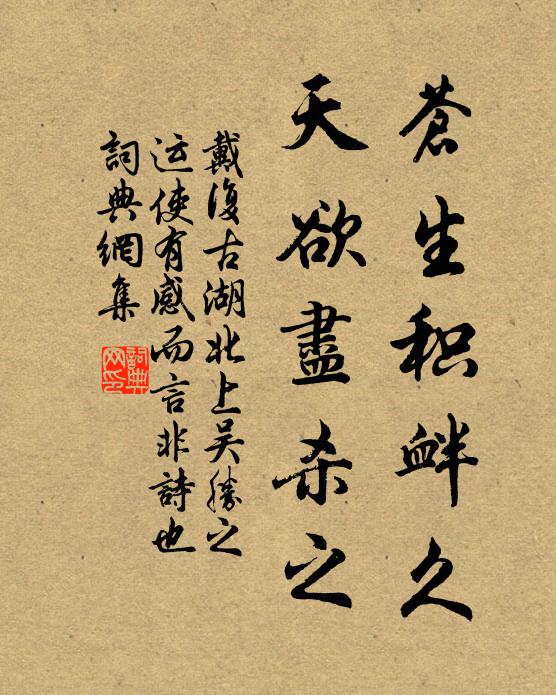 蒼生积衅久
天欲盡杀之
戴復古湖北上吴勝之
运使有感而言非詩也
詞典網集
詞典
网印